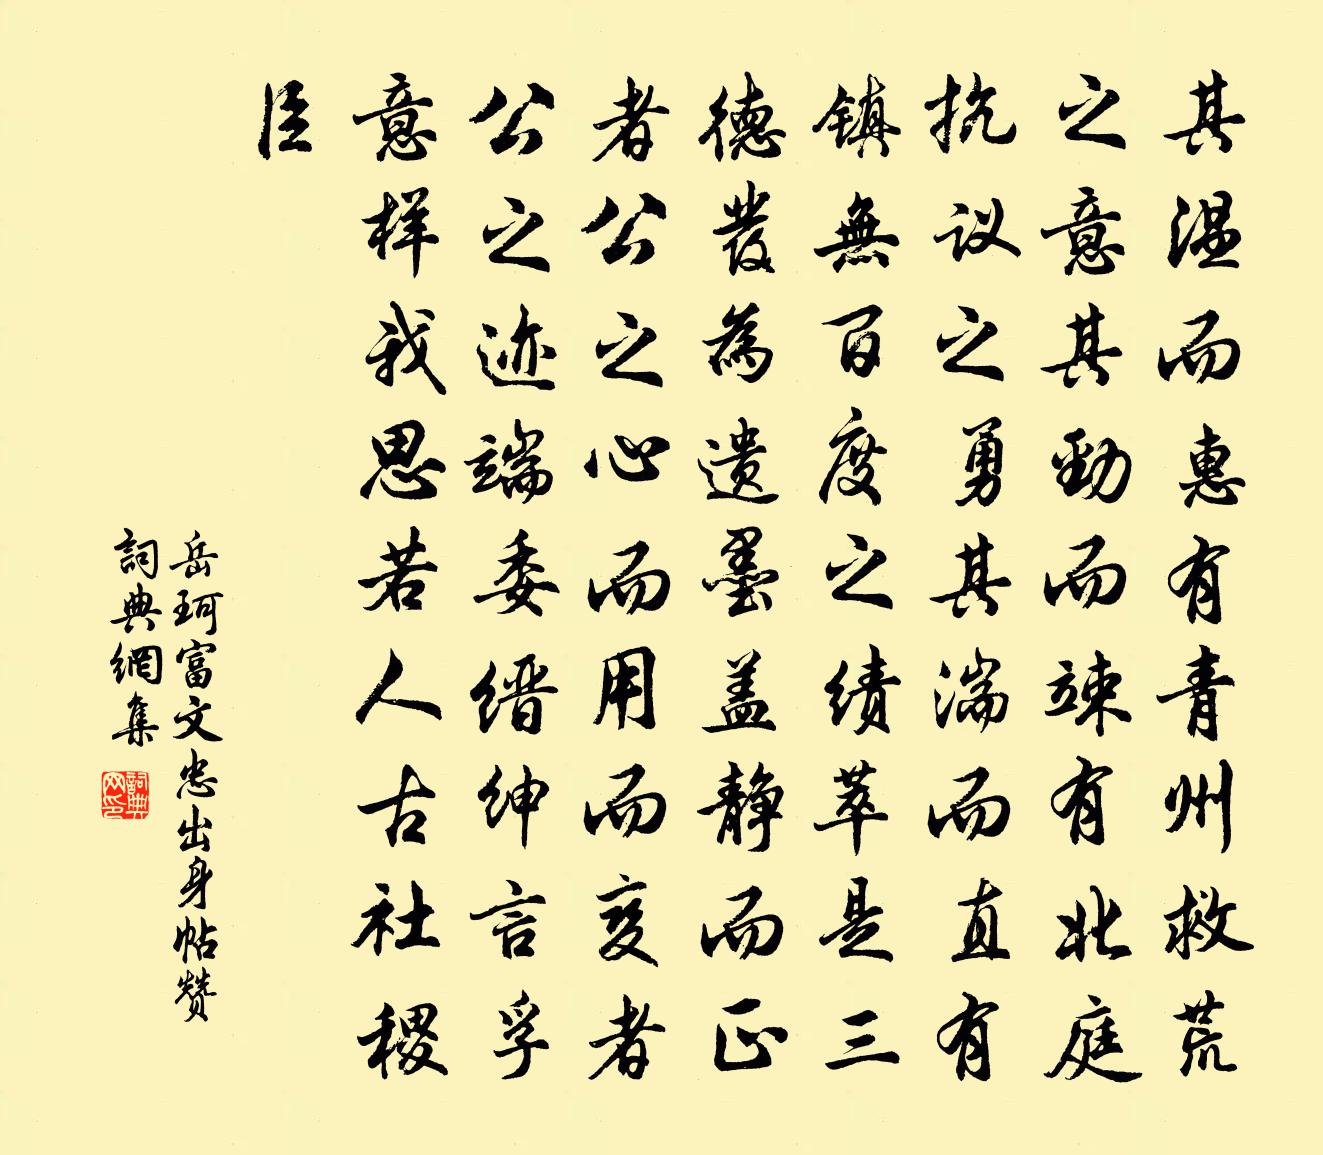 其温而惠有青州救荒
之意其勁而竦有北庭
抗议之勇其湍而直有
镇無百度之绩萃是三
德發為遗墨盖静而正
者公之心而用而变者
公之迹端委缙绅言孚
意样我思若人古社稷
臣
岳珂富文忠出身帖赞
詞典網集
詞典网印